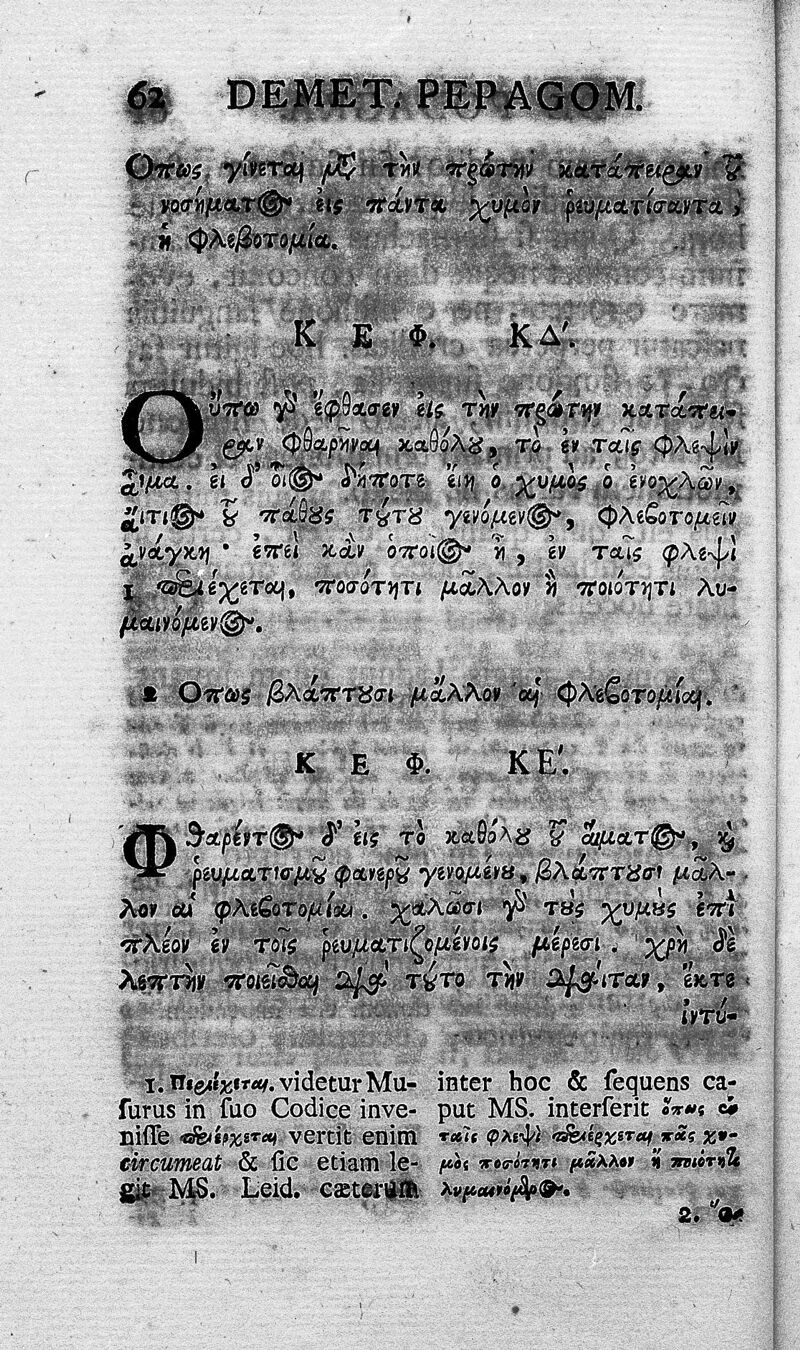 62 DEMET. PEPAGOM.
Οπως γίνεται μτ̃ τὴν πρώτην κατάπειραν τ̃
νοσήματος εἰς πάντα χυμὸν ῥευματίσαντα,
ἡ Φλεβοτομία.
ΚΕΦ. ΚΔ΄.
Οὔπω γδ̀ ἔφθασεν εἰς τὴν πρώτην κατάπει-
ραν Φθαρῆναι καθόλου, τὸ ἐν ταῖς Φλεψὶν
ἆιμα. εἰ δ' οἷος δήποτε ἔιη ὁ χυμὸς ὁ ἐνοχλῶν,
ἄιτιος τ̃ πάθους τούτου γενόμενος, Φλεβοτομεῖν
ἀνάγκη· ἐπεὶ κἂν ὁποῖος ἦ, ἐν ταῖς φλεψὶ
1 περιέχεται, ποσότητι μᾶλλον ἢ ποιότητι λυ-
μαινόμενος.
2 Οπως βλάπτουσι μᾶλλον αἱ Φλεβοτομίαι.
ΚΕΦ. ΚΕ΄.
Φθαρέντος δ' εἰς τὸ καθόλου τ̃ ἅιματος, καὶ
ῥευματισμοῦ φανεροῦ γενομένου, βλάπτουσι μᾶλ-
λον αἱ φλεβοτομίαι. χαλῶσι γδ̀ τοὺς χυμοὺς ἐπὶ
πλέον ἐν τοῖς ῥευματιζομένοις μέρεσι. χρὴ δὲ
λεπτὴν ποιεῖσθαι διὰ τούτο τὴν δίαιταν, ἔκτε
ἐντύ-
1. Περιέχεται. videtur Mu-
ſurus in ſuo Codice inve-
niſſe περιέρχεται vertit enim
circumeat & ſic etiam le-
git MS. Leid. cæterum
inter hoc & ſequens ca-
put MS. interſerit ὅπως ἐν
ταῖς φλεψὶ περιέρχεται πᾶς χυ-
μὸς ποσότητι μᾶλλον ἢ ποιότητι
λυμαινόμενος.
2. Ὅπ